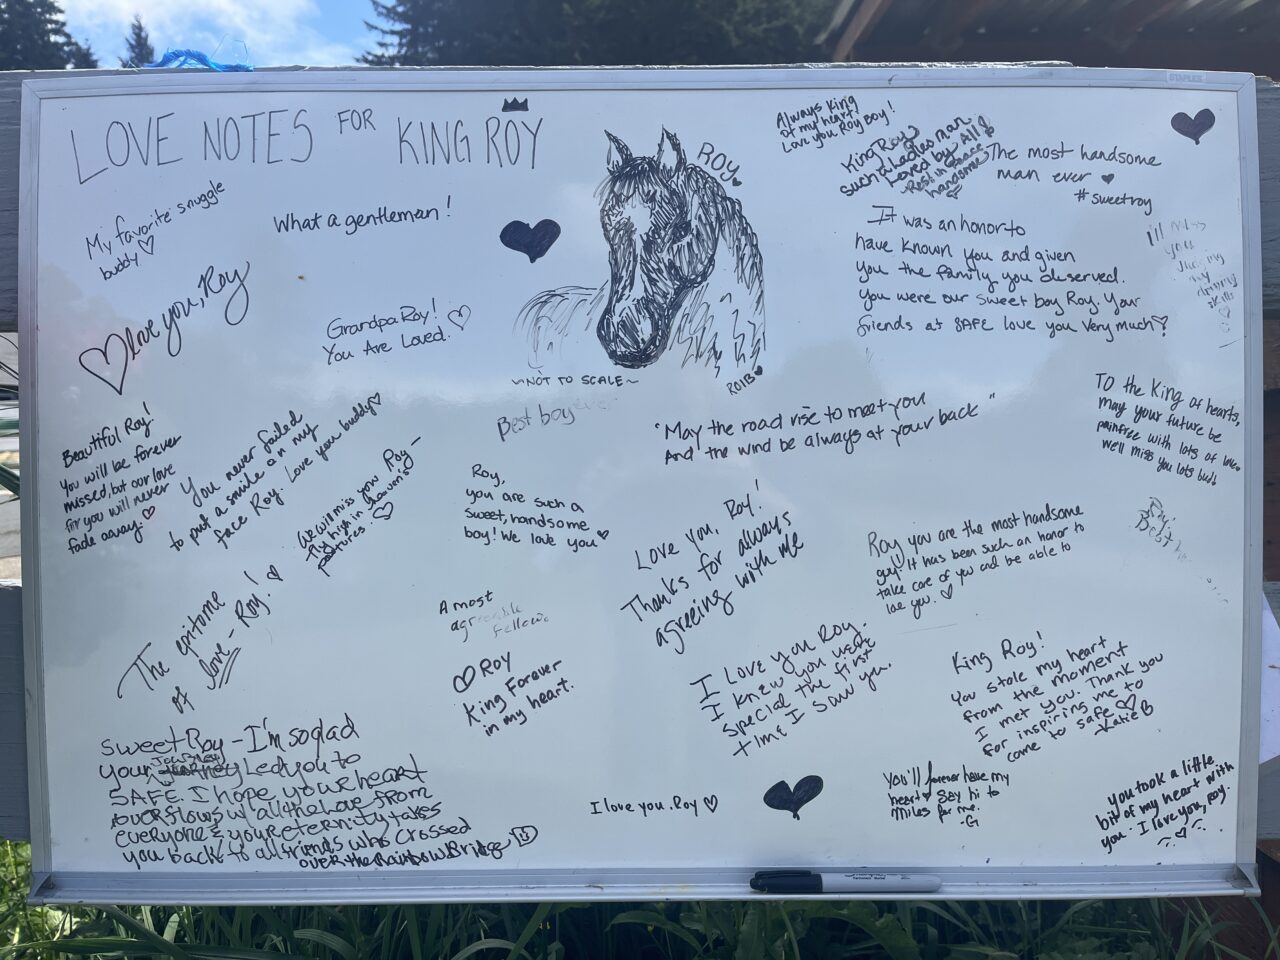 STAPLES
LOVE NOTES FOR KING ROY
Always King
of my heart!
Love you Roy Boy!
King Roy
such a Ladies man
Loved by All!
Rest in Peace
handsome
ROY
The most handsome
man ever
#sweetroy
My favorite snuggle
buddy
What a gentleman!
love you, Roy
Grandpa Roy!
You Are Loved.
It was an honor to
have known you and given
you the family you deserved.
You were our sweet boy Roy. Your
friends at SAFE love you very much
I'll miss
you
my
skills
~NOT TO SCALE~
ROIB
Best boy ever
"May the road rise to meet you
And the wind be always at your back"
To the King of hearts,
may your future be
painfree with lots of love.
we'll miss you lots bud.
Beautiful Roy!
You will be forever
missed, but our love
for you will never
fade away.
You never failed
to put a smile on my
face Roy. Love you buddy
We will miss you Roy -
fly high in heaven's
pastures.
Roy,
you are such a
sweet, handsome
boy! We love you
Love you, Roy!
Thanks for always
agreeing with me
Roy you are the most handsome
guy! It has been such an honor to
take care of you and be able to
love you.
Best
The epitome
of love - Roy!
A most
agreeable
fellow.
Roy
King Forever
in my heart.
I love you Roy.
I knew you were
special the first
time I saw you.
King Roy!
You stole my heart
from the moment
I met you. Thank you
for inspiring me to
come to safe
Katie B
Sweet Roy - I'm so glad
your Journey Led you to
SAFE. I hope your heart
overflows w/ all the Love from
everyone & your eternity takes
you back to all friends who crossed
over the Rainbow Bridge
I love you, Roy
You'll forever have my
heart Say hi to
Miles for me.
-G
You took a little
bit of my heart with
you. I love you, Roy.